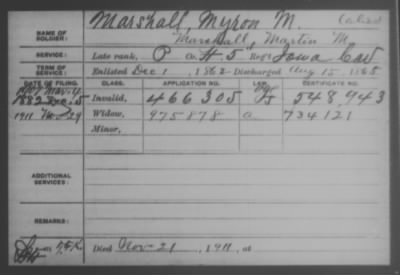 Marshall, Myron M. (alias
NAME OF SOLDIER: Marshall, Martin M.
SERVICE: Late rank, P Co. H 5" Reg't Iowa Cav
TERM OF SERVICE: Enlisted Dec 1, 1862 Discharged Aug 15, 1865
DATE OF FILING. CLASS. APPLICATION NO. LAW. CERTIFICATE NO.
1882 Dec. 5 Invalid, 466305 548,943
1911 29 Widow, 975878 a. 734121
Minor,
ADDITIONAL SERVICES:
REMARKS:
Died Nov 21, 1911, at